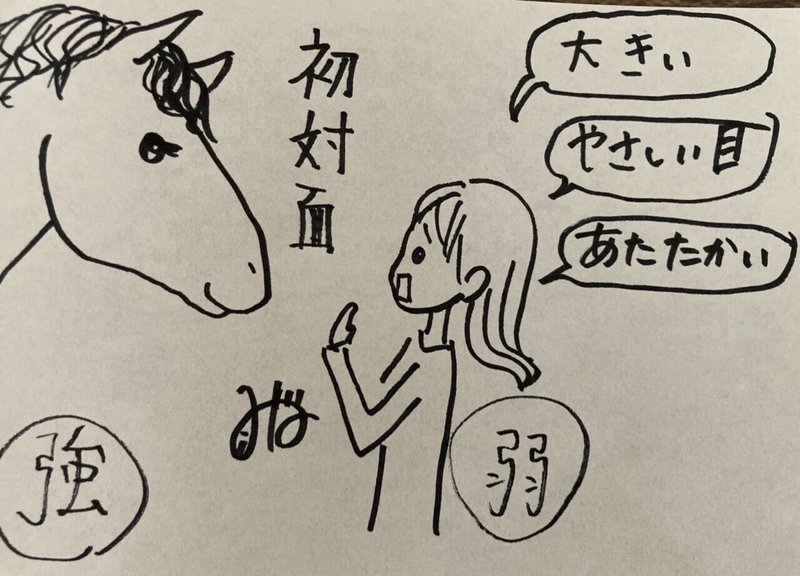 初対面
大きい
やさしい目
あたたかい
強
弱